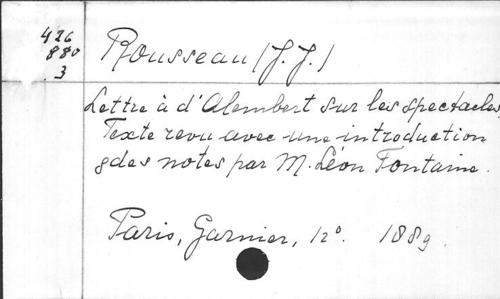 426
880
3
Rousseau (J. J.)
Lettre à d'Alembert sur les spectacles.
Texte revu avec une introduction
& des notes par M. Léon Fontaine.
Paris, Garnier, 12°. 1889.